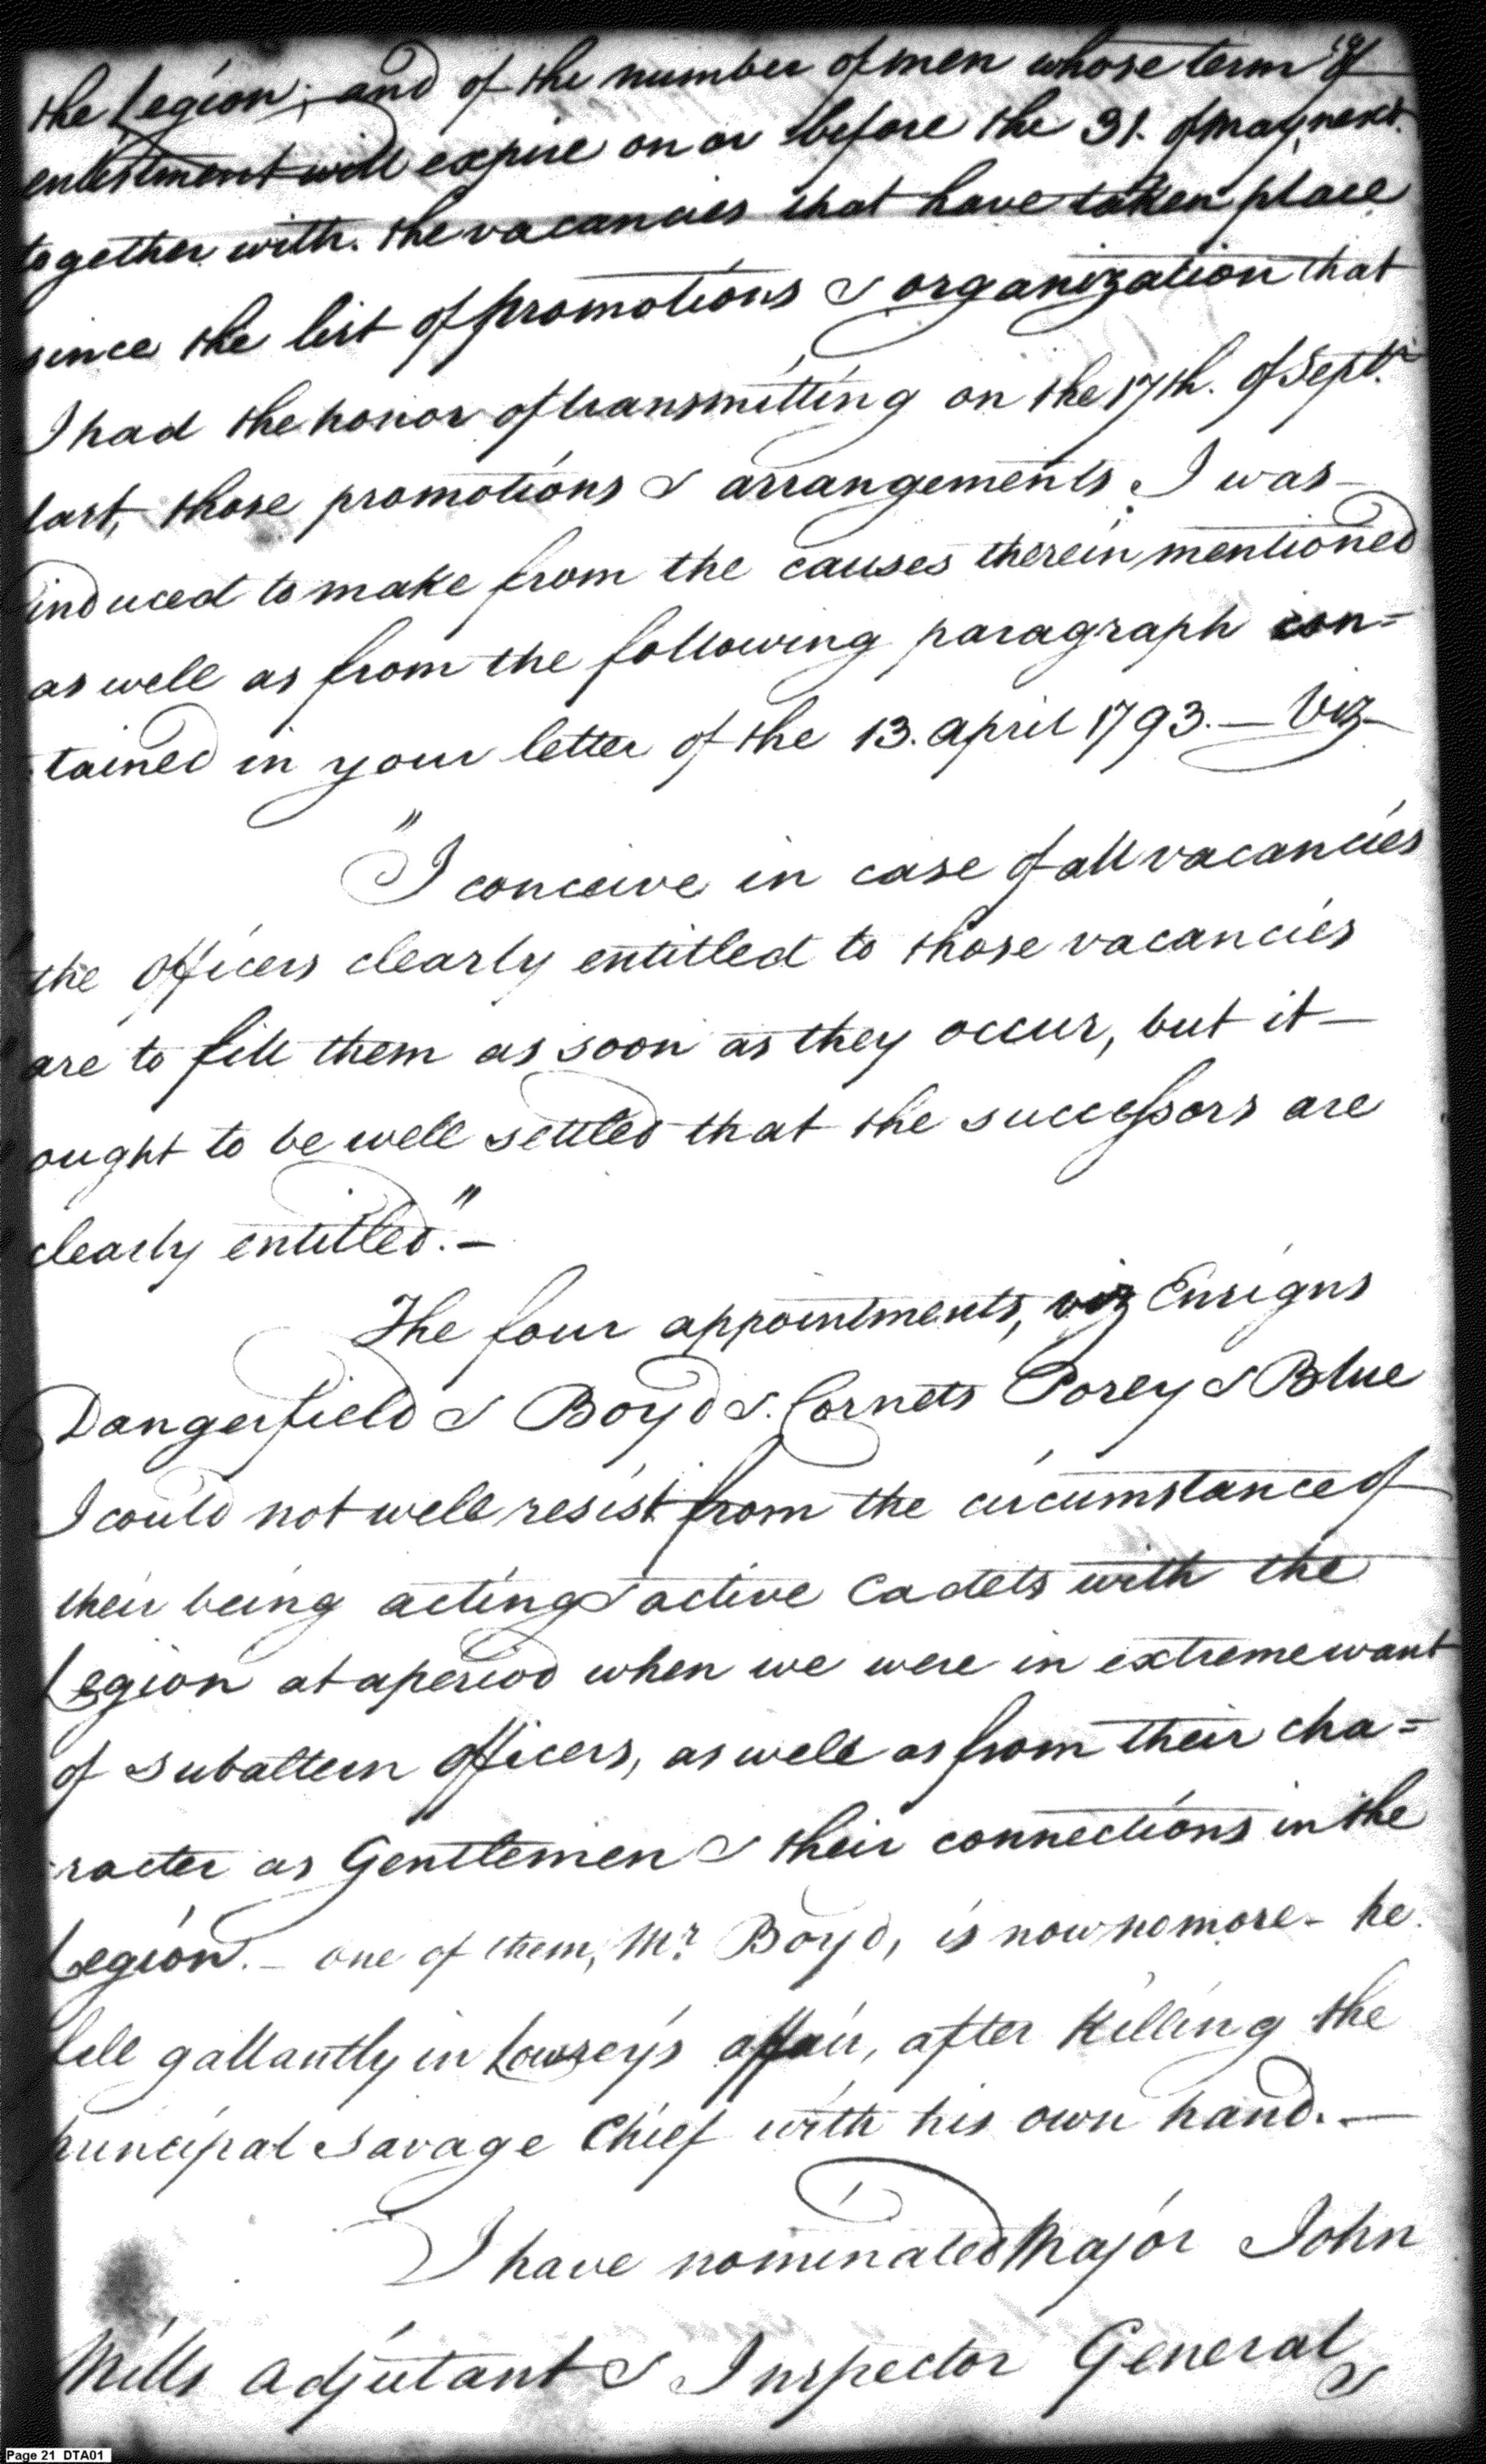 19
the Legion; and of the number of men whose term of
enlistment will expire on or before the 31. of may next.
together with. the vacancies that have taken place
since the list of promotions & organization that
I had the honor of transmitting on the 17th. of Septr.
last, those promotions & arrangements I was—
induced to make from the causes therein mentioned
as well as from the following paragraph con=
tained in your letter of the 13. april 1793.— Viz—
"I conceive in case of all vacancies
the officers clearly entitled to those vacancies
are to fill them as soon as they occur, but it—
ought to be well settled that the successors are
clearly entitled."—
The four appointments, viz Ensigns
Dangerfield & Boyd &. Cornets Posey & Blue
I could not well resist from the circumstance of
their being acting & active Cadets with the
Legion at a period when we were in extreme want
of subaltern officers, as well as from their cha=
racter as Gentlemen & their connections in the
Legion.— one of them, Mr. Boyd, is now no more— he
fell gallantly in Lowrey's affair, after killing the
principal savage Chief with his own hand.—
I have nominated Major John
Mills Adjutant & Inspector General
&
Page 21 DTA01